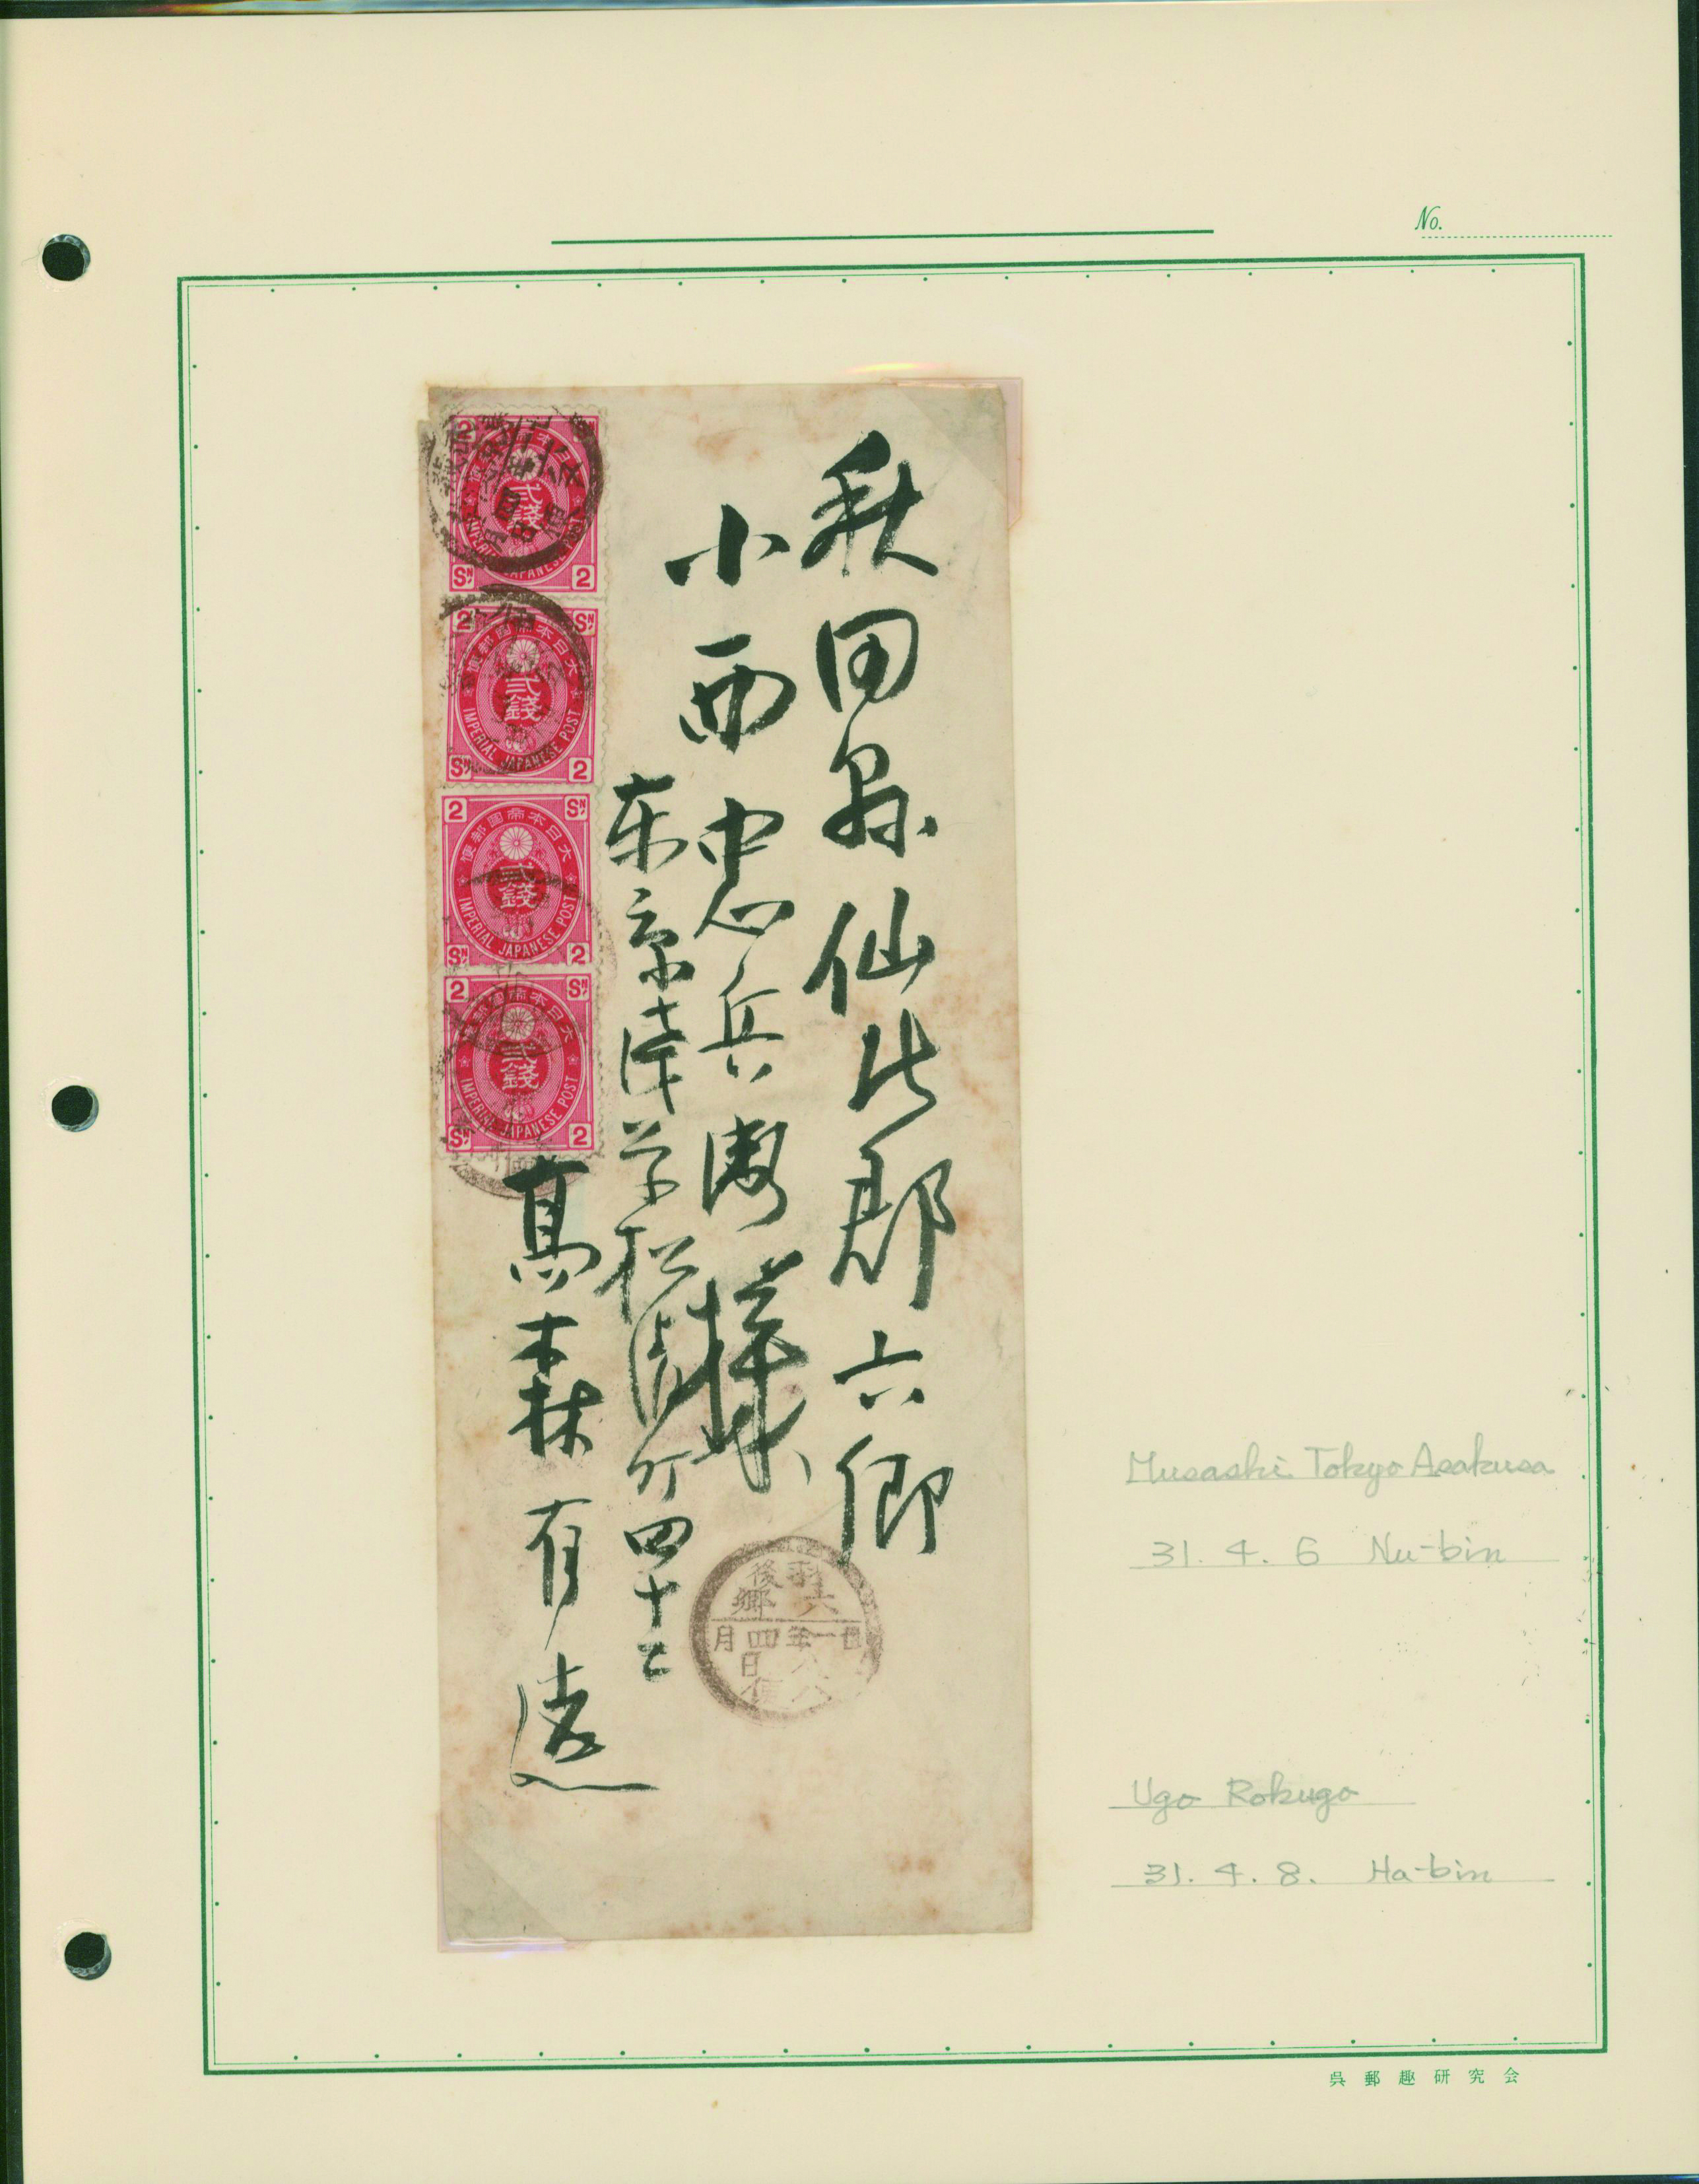 No.
秋田县仙北郡六郷
小西忠兵衛様
東京浅草松清町四十二
高森有遠
2 SN
大日本帝國郵便
貳錢
IMPERIAL JAPANESE POST
SN 2
2 SN
大日本帝國郵便
貳錢
IMPERIAL JAPANESE POST
SN 2
2 SN
大日本帝國郵便
貳錢
IMPERIAL JAPANESE POST
SN 2
2 SN
大日本帝國郵便
貳錢
IMPERIAL JAPANESE POST
SN 2
羽後
六郷
卅一年四月
八日
ハ便
Musashi Tokyo Asakusa
31. 4. 6 Nu-bin
Ugo Rokugo
31. 4. 8. Ha-bin
呉郵趣研究会